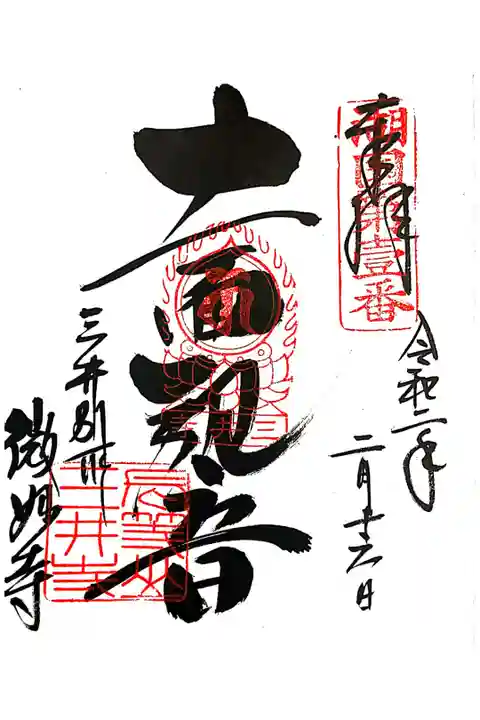 奉拝
湖国第壹番
令和二年
二月十六日
十一面観音
三井別所
微妙寺
三井寺